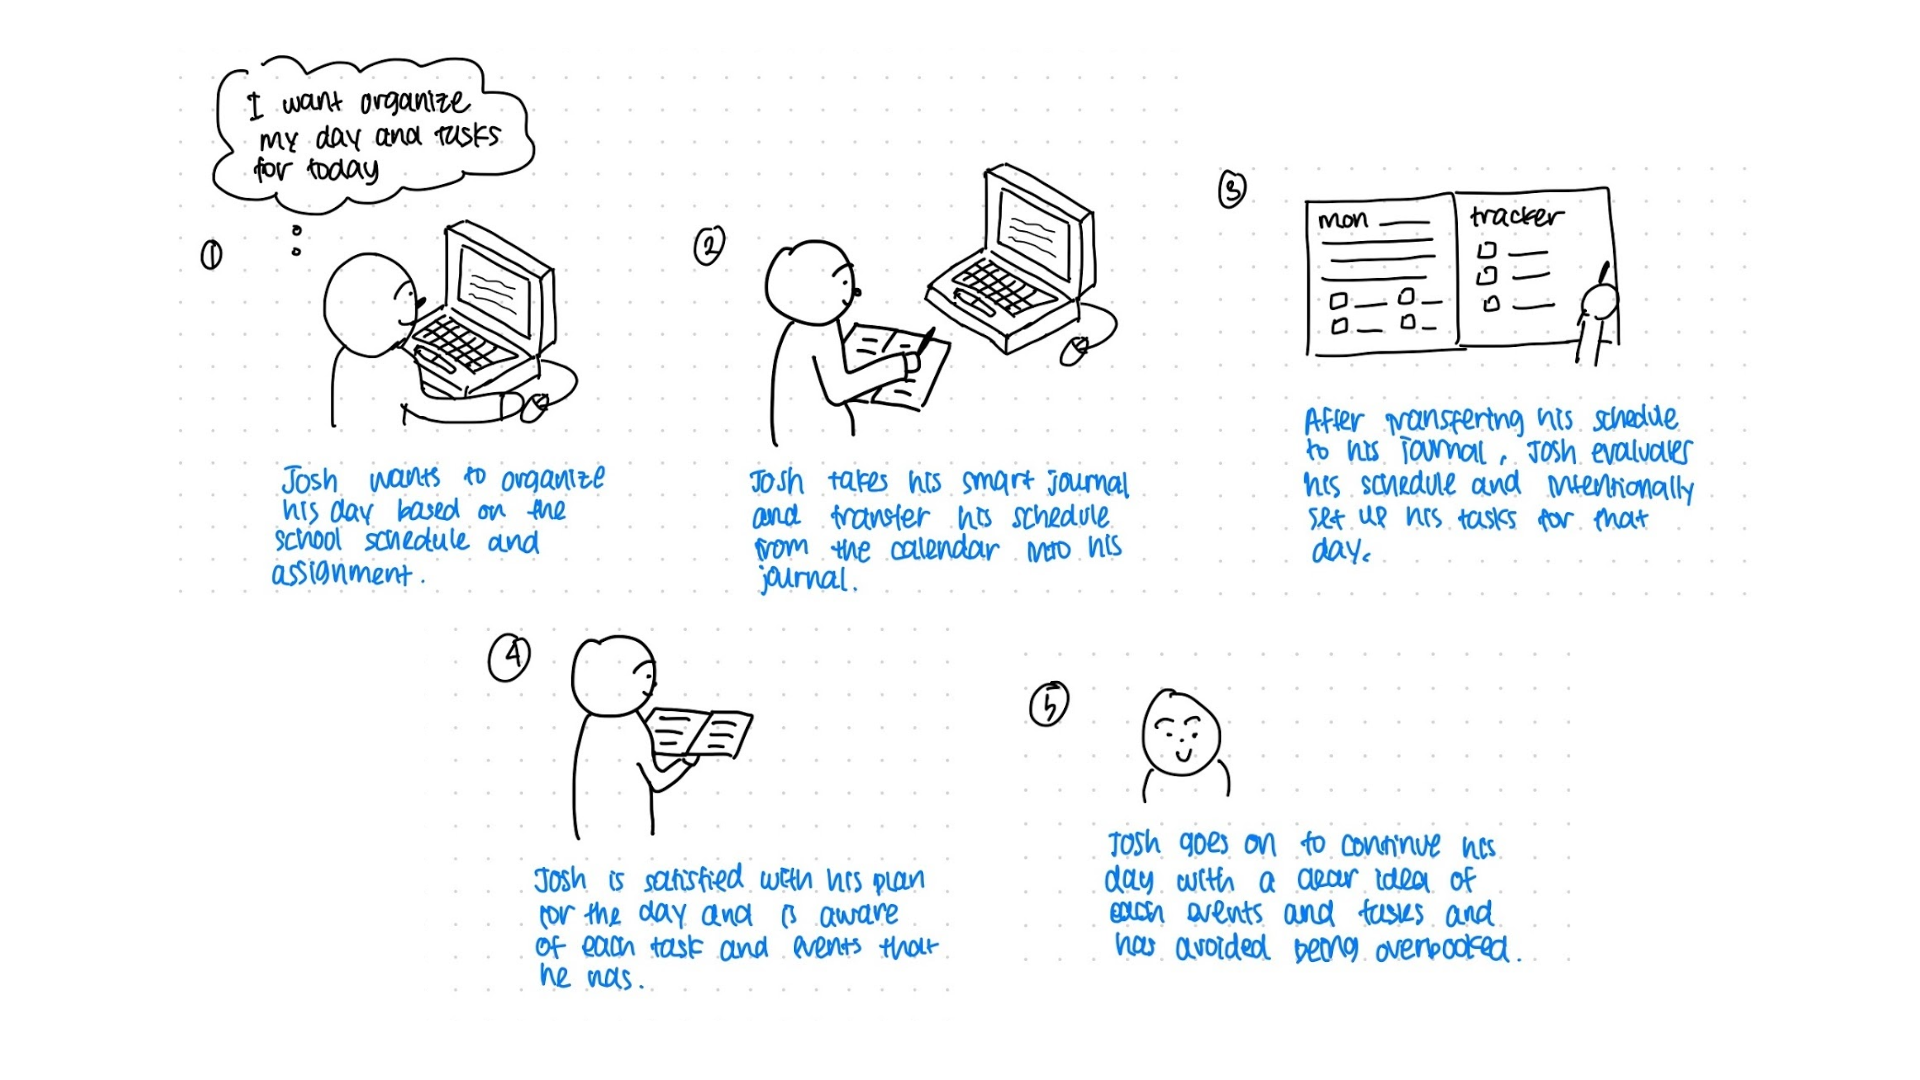 I want organize
my day and tasks
for today
1
Josh wants to organize
his day based on the
school schedule and
assignment.
2
Josh takes his smart journal
and transfer his schedule
from the calendar into his
journal.
3
mon
tracker
After transfering his schedule
to his journal, Josh evaluates
his schedule and intentionally
set up his tasks for that
day.
4
Josh is satisfied with his plan
for the day and is aware
of each task and events that
he has.
5
Josh goes on to continue his
day with a clear idea of
each events and tasks and
has avoided being overbooked.